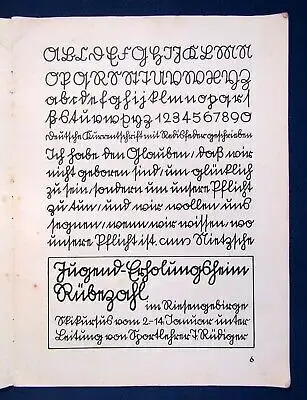 A B C D E F G H I J K L M N
O P Q R S T U V W X Y Z
a b c d e f g h i j k l m n o p q r s
ß s t ü v w x y z 1 2 3 4 5 6 7 8 9 0
Deutsche Kurrentschrift mit Redisfeder geschrieben
Ich habe den Glauben, daß wir
nicht geboren sind, um glücklich
zu sein, sondern um unsere Pflicht
zu tun, und wir wollen uns
segnen, wenn wir wissen, wo
unsere Pflicht ist. Nietzsche
Jugend-Erholungsheim
Rübezahl
im Riesengebirge
Skikursus vom 2-14. Januar unter
Leitung von Sportlehrer T. Rüdiger
6